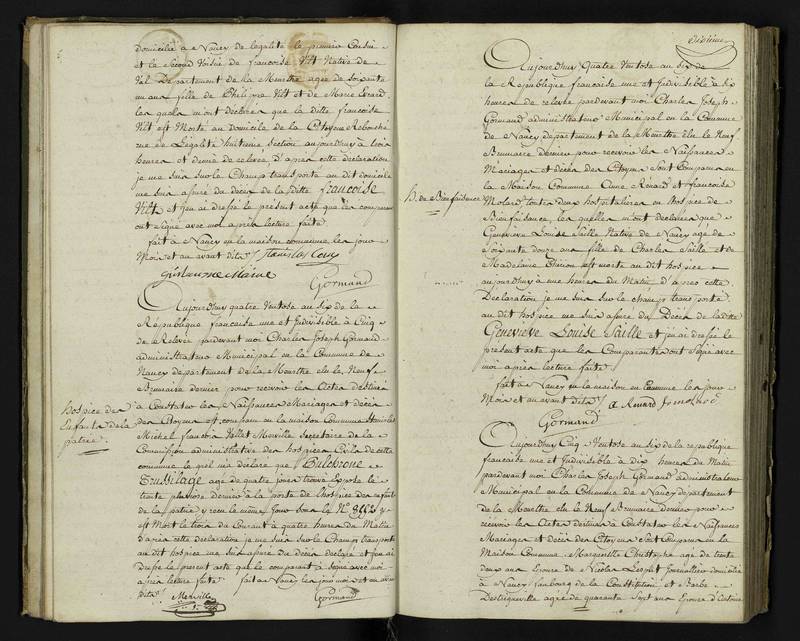 domicilié à Nancy de légalité le premier Cousin
et le Second Voisin de francoise Vilt Native de
Vel Département de la Meurthe agée de soixante
un ans fille de Philippe Vilt et de Marie
les quels m'ont déclarés que la ditte francoise
Vilt est Morte au domicile de la Citoyene
rue de l'Egalité huitieme section aujourdhuy à trois
heures et demie de relevée, D'après cette déclaration
je me suis sur le Champ transporté au dit domicile
me suis assuré du décès de la ditte francoise
Vilt et j'en ai dressé le présent acte que les comparans
ont signé avec moi après lecture faite
fait à Nancy en la maison commune les jour
Mois et an avant dits Stanislas
Gormand
Aujourdhuy quatre Ventose an six de la
République francaise une et Indivisible à Cinq
de Relevée pardevant moi Charles Joseph Gormand
administrateur Municipal en la Commune de
Nancy département de la Meurthe élu le Neuf
Brumaire dernier pour recevoir les Actes destinés
à Constater les Naissances Mariages et décès
des Citoyens est comparu en la maison Commune Stanislas
Michel francois Vallet Merville secretaire de la
Commission administrative des hospices Civils de cette
commune le quel m'a déclaré que Pulcherone
Trussilage agé de quatre jours trouvé Exposé le
trente pluviose dernier à la porte de l'hospice des enfans
de la patrie y recu le même jour sous le No.
est Mort le trois du Courant à quatre heures du Matin
D'après cette déclaration je me suis sur le Champ transporté
au dit hospice me suis assuré du Décès déclaré et j'en ai
dressé le present acte que le comparant à signé avec moi
après lecture faite fait à Nancy les jour mois et an avant
dits Merville Gormand
hospice des
Enfans de la
patrie
Aujourdhuy Quatre Ventose an six de
la République francoise une et Indivisible à six
heures de relevée pardevant moi Charles Joseph
Gormand administrateur Municipal en la Commune
de Nancy département de la Meurthe élu le Neuf
Brumaire dernier pour recevoir les Naissances
Mariages et décès des Citoyens Sont Comparues en
la Maison Commune Anne Rénard et francoise
Molard toutes deux hospitalieres en hospice de
Bienfaisance, les quelles m'ont déclarées que
Geneviève Louise Saille Native de Nancy agée de
soixante douze ans fille de Charles Saille et de
Madelaine est morte au dit hospice
aujourdhuy à une heure du Matin D'après cette
Déclaration je me suis sur le champ transporté
au dit hospice me suis assuré du Décès de la ditte
Geneviève Louise Saille et j'en ai dressé le
present acte que les Comparantes ont signé avec
moi après lecture faite
fait à Nancy en la maison Commune les jour
Mois et an avant dits A Renard f molard
Gormand
h. de Bienfaisance
Aujourdhuy Cinq Ventose an six de la republique
francoise une et Indivisible à Dix heures du Matin
pardevant moi Charles Joseph Gormand administrateur
Municipal en la Commune de Nancy département
de la Meurthe élu le Neuf Brumaire Dernier pour
recevoir les Actes destinés à Constater les Naissances
Mariages et décès des Citoyens sont Comparues en la
Maison Commune Marguerite Christophe agée de trente
deux ans Epouse de Nicolas Journallier domicilié
à Nancy faubourg de la Constitution et Barbe
agée de quarante sept ans Epouse d'Antoine